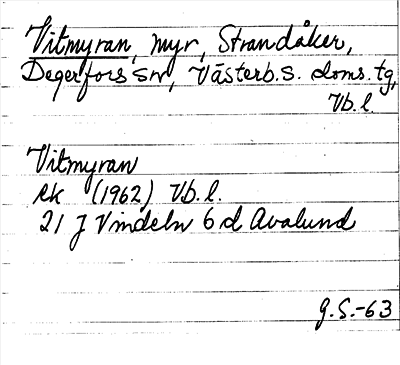 Vitmyran, myr, Strandåker,
Degerfors sn, Västerb.s. doms.tg,
Vb.l.
Vitmyran
ek (1962) Vb.l.
21 J Vindeln 6 d Avalund
G.S.-63